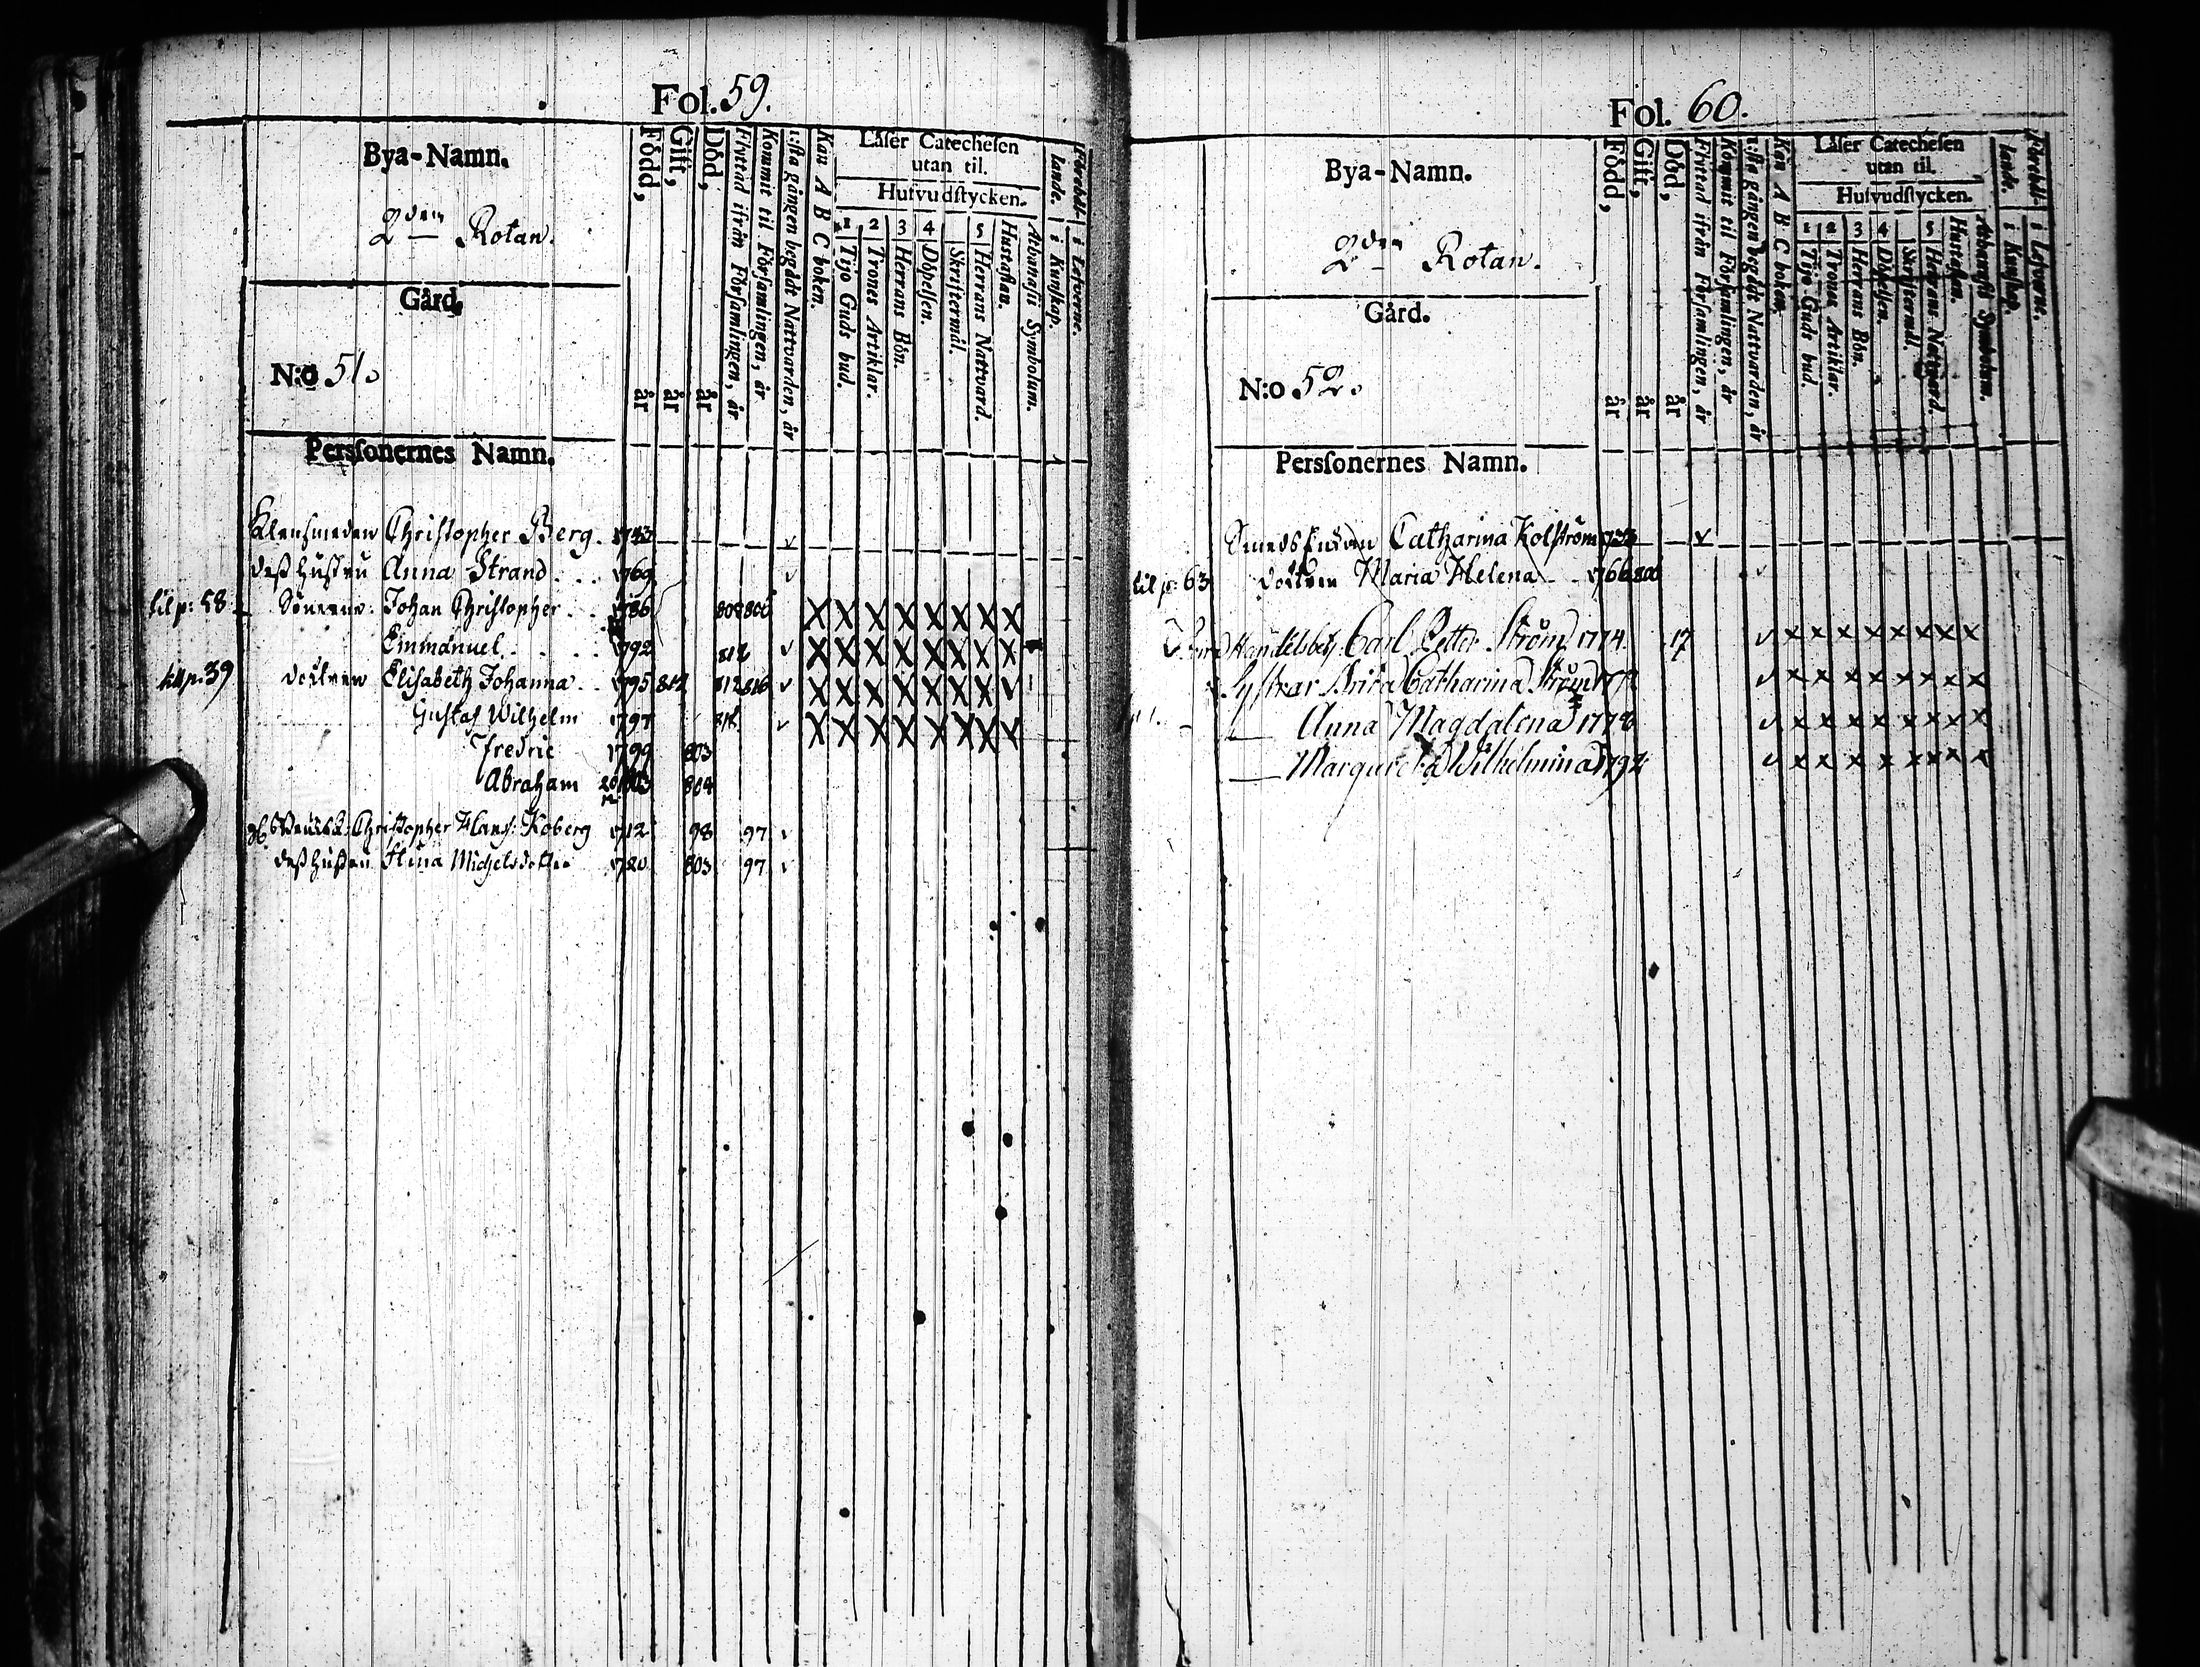 Fol. 59.
Bya-Namn.
2den Rotan.
Gård,
N:o 51.
Perssonernes Namn.
Född, år
Gift, år
Död, år
Flyttad ifrån Församlingen, år
Kommit til Församlingen, år
1:sta gången begådt Nattvarden, år
Kan A B C boken.
Läser Catechesen
utan til.
Hufvudstycken.
1 Tijo Guds bud.
2 Trones Artiklar.
3 Herrans Bön.
4 Döpelsen.
Skriftermål.
5 Herrans Nattvard.
Hustaflan.
Athanasii Symbolum.
Förehållande.
i Kunskap.
i Lefverne.
Klensmeden Christopher Berg. 1743
dess hustru Anna Strand . . . 1769
til p: 58 Sonerne: Johan Christopher . . 1786 808 806 X X X X X X X X
Emmanuel . . . . 1792 812 X X X X X X X X
til p: 39 dottren Elisabeth Johanna . . 1795 812 812 816 X X X X X X X
Gustaf Wilhelm 1797 816 X X X X X X X
Fredric 1799 803
Abraham 1803 804
Christopher Hans: Koberg 1712 98 97
dess hustru Stina Michelsdotter 1720 803 97
Fol. 60.
Bya-Namn.
2den Rotan.
Gård.
N:o 52.
Perssonernes Namn.
Född, år
Gift, år
Död, år
Flyttad ifrån Församlingen, år
Kommit til Församlingen, år
1:sta gången begådt Nattvarden, år
Kan A B C boken.
Läser Catechesen
utan til.
Hufvudstycken.
1 Tijo Guds bud.
2 Trones Artiklar.
3 Herrans Bön.
4 Döpelsen.
Skriftermål.
5 Herrans Nattvard.
Hustaflan.
Athanasii Symbolum.
Förehållande.
i Kunskap.
i Lefverne.
Smeds Enkan Catharina Kolström 1733
til p: 63 dottren Maria Helena 1766
Handelsbetj. Carl Petter Ström 1774. 17 x x x x x x x x
Systrar Brita Catharina Ström x x x x x x x x
Anna Magdalena 1778 x x x x x x x x
Margareta Wilhelmina 1792 x x x x x x x x